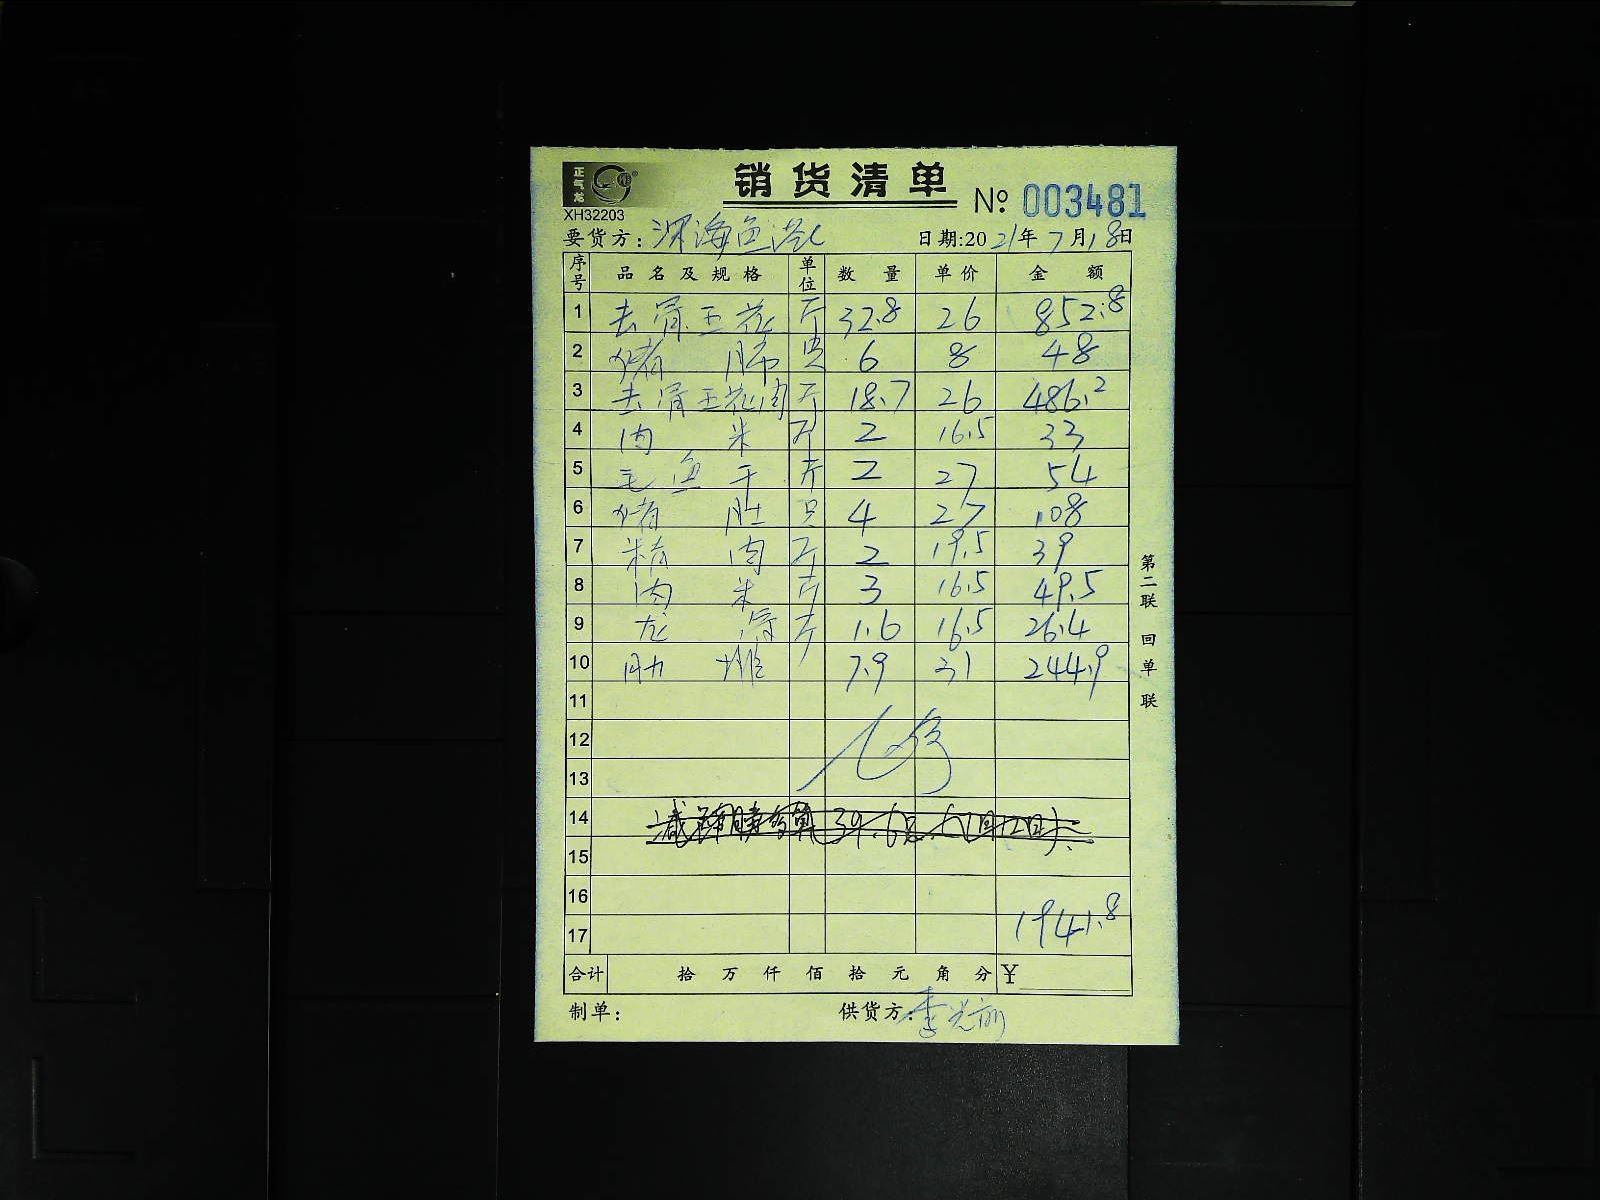 正气龙
XH32203
销货清单
№ 003481
要货方: 深海鱼港
日期:2021年7月18日
序号 品名及规格 单位 数量 单价 金额
1 去骨五花 斤 32.8 26 852.8
2 猪肺 只 6 8 48
3 去骨五花肉 斤 18.7 26 486.2
4 肉米 斤 2 16.5 33
5 毛鱼干 斤 2 27 54
6 猪肚 只 4 27 108
7 精肉 斤 2 19.5 39
8 肉米 斤 3 16.5 49.5
9 龙骨 斤 1.6 16.5 26.4
10 肋排 7.9 31 244.9
11
12
13
14
15
16
17 1941.8
合计 拾万仟佰拾元角分 ¥
制单:
供货方: 李光
第二联 回单联